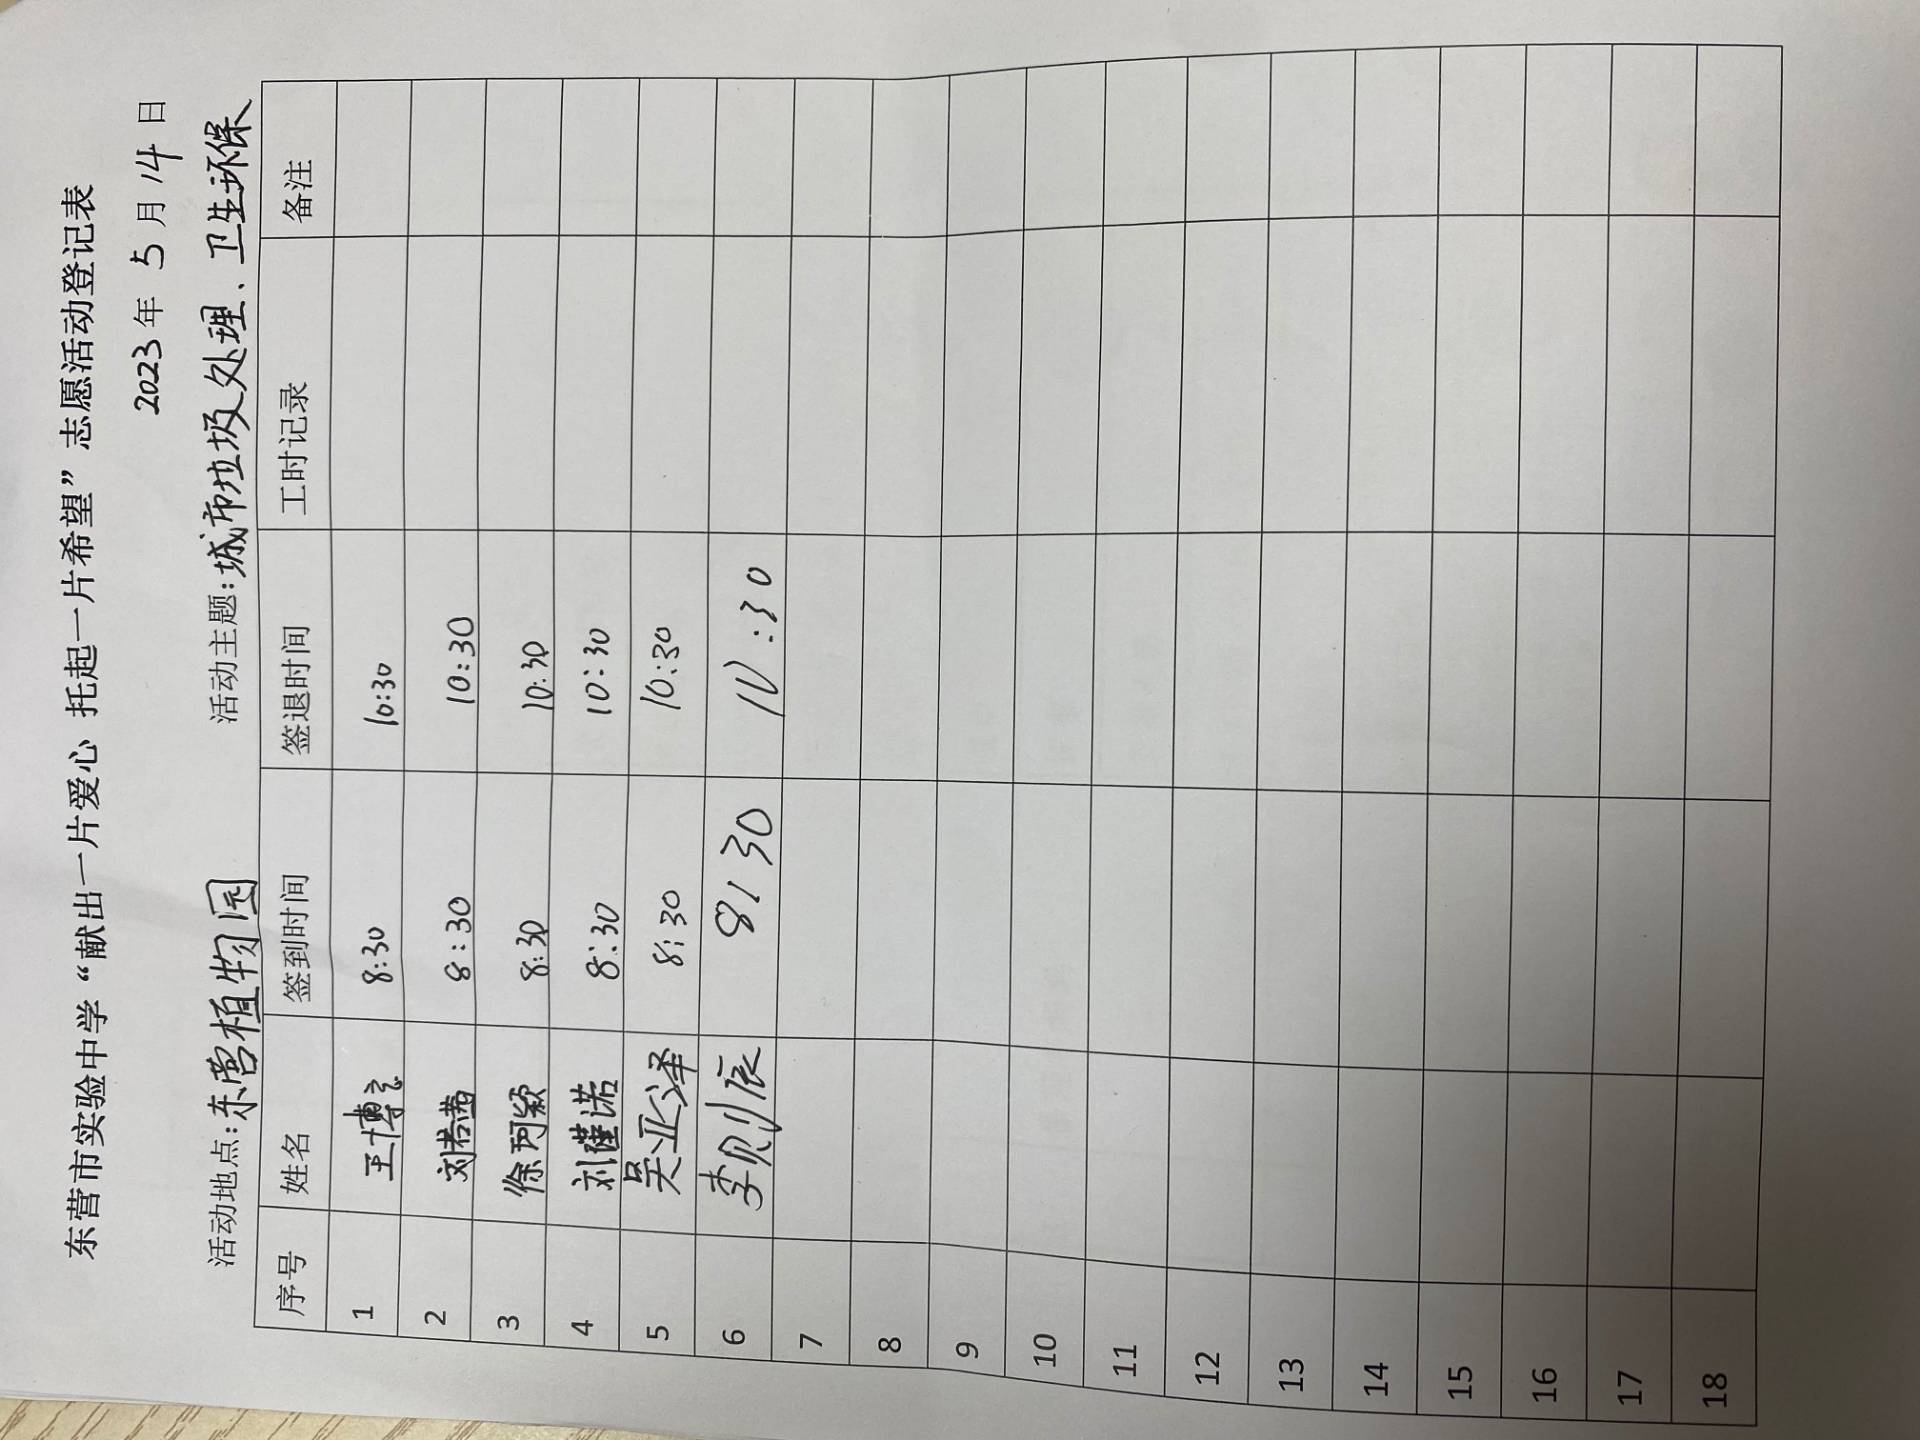 东营市实验中学“献出一片爱心 托起一片希望”志愿活动登记表
2023年 5 月 14 日
活动地点:东营植物园 活动主题:城市垃圾处理、卫生环保
序号 姓名 签到时间 签退时间 工时记录 备注
1 王博言 8:30 10:30
2 刘 8:30 10:30
3 徐珂颖 8:30 10:30
4 刘瑾诺 8:30 10:30
5 吴亚泽 8:30 10:30
6 李贝辰 8:30 10:30
7
8
9
10
11
12
13
14
15
16
17
18